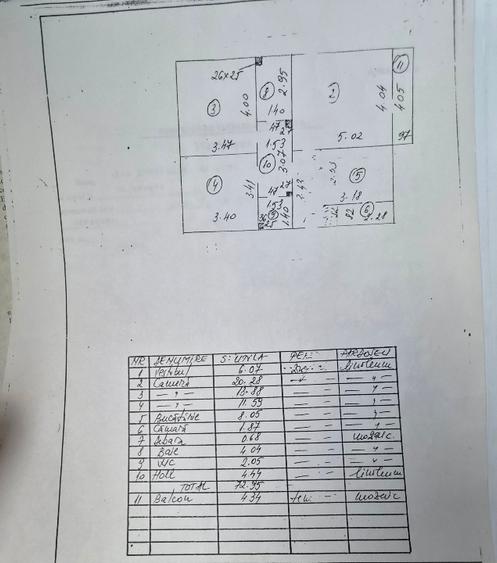 26×25
8
2.95
2
11
3
4.00
4.04
4.05
140
47
3.47
1.53
5.02
97
10
3.07
4
3.41
5
47
27
3.18
3.40
1.53
1.40
22
6
2.28
NR DENUMIRE S. UTILA PARDOSEA
1 Vestibul 6.07 Linoleum
2 Camera 20.28 — " —
3 — " — 13.88 — " —
4 — " — 11.59 — " —
5 Bucătărie 8.05 — " —
6 Cămară 1.87 — " —
7 Debara 0.68 mozaic
8 Baie 4.04 — " —
9 WC 2.05 — " —
10 Holl 4.44 Linoleum
TOTAL 72.95
11 Balcon 4.94 mozaic